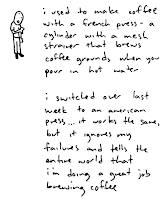 i used to make coffee
with a french press - a
cylinder with a mesh
strainer that brews
coffee grounds when you
pour in hot water
i switched over last
week to an american
press... it works the same,
but it ignores my
failures and tells the
entire world that
i'm doing a great job
brewing coffee